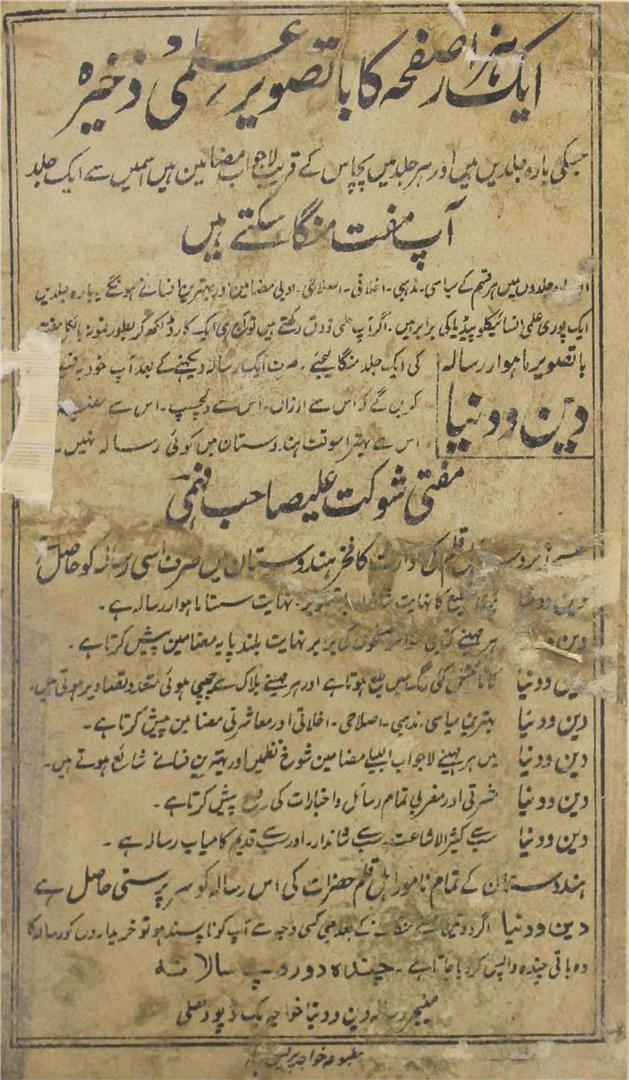 ایک ہزار صفحہ کا باتصویر علمی و ادبی ذخیرہ
جسکی بارہ جلدیں ہیں اور ہر جلد میں پچاس کے قریب لاجواب مضامین ہیں اسمیں سے ایک جلد
آپ مفت منگا سکتے ہیں
بارہ جلدوں میں ہر قسم کے سیاسی۔ مذہبی۔ اخلاقی۔ اصلاحی۔ ادبی مضامین اور بہترین افسانے ہونگے یہ بارہ جلدیں
ایک پوری علمی انسائیکلوپیڈیا کی برابر ہیں۔ اگر آپ علمی ذوق رکھتے ہیں تو آج ہی ایک کارڈ لکھ کر بطور نمونہ بالکل مفت
باتصویر ماہوار رسالہ
دین و دنیا
کی ایک جلد منگا لیجئے۔ صرف ایک رسالہ دیکھنے کے بعد آپ خود یہ
کریں گے کہ اس سے ارزاں۔ اس سے دلچسپ۔ اس سے
اس سے بہتر اسوقت ہندوستان میں کوئی رسالہ نہیں۔
مفتی شوکت علیصاحب فہمی
قلم کی ادارت کا فخر ہندوستان میں صرف اسی رسالہ کو حاصل
دین و دنیا کا نہایت باتصویر۔ نہایت سستا ماہوار رسالہ ہے۔
دین ہر مہینے کتابی صفحوں کی برابر نہایت بلند پایہ مضامین پیش کرتا ہے۔
دین و دنیا کا ٹائیٹل کئی رنگ میں طبع ہوتا ہے اور ہر مہینے بلاک سے چھپی ہوئی متعدد تصاویر ہوتی ہیں۔
دین و دنیا بہترین سیاسی۔ مذہبی۔ اصلاحی۔ اخلاقی اور معاشرتی مضامین پیش کرتا ہے۔
دین و دنیا میں ہر مہینے لاجواب ادبی مضامین شوخ نظمیں اور بہترین فسانے شائع ہوتے ہیں۔
دین و دنیا مشرقی اور مغربی تمام رسائل و اخبارات کی روح پیش کرتا ہے۔
دین و دنیا سب سے کثیرالاشاعت۔ سب سے شاندار۔ اور سب سے قدیم کامیاب رسالہ ہے۔
ہندوستان کے تمام نامور اہل قلم حضرات کی اس رسالہ کو سرپرستی حاصل ہے
دین و دنیا اگر دو تین مہینے منگانے کے بعد بھی کسی وجہ سے آپ کو ناپسند ہو تو خریداروں کو رسالہ کا
وہ باقی چندہ واپس کر دیا جاتا ہے۔ چندہ دو روپے سالانہ
منیجر رسالہ دین و دنیا خواجہ بک ڈپو دہلی
مطبوعہ خواجہ پریس